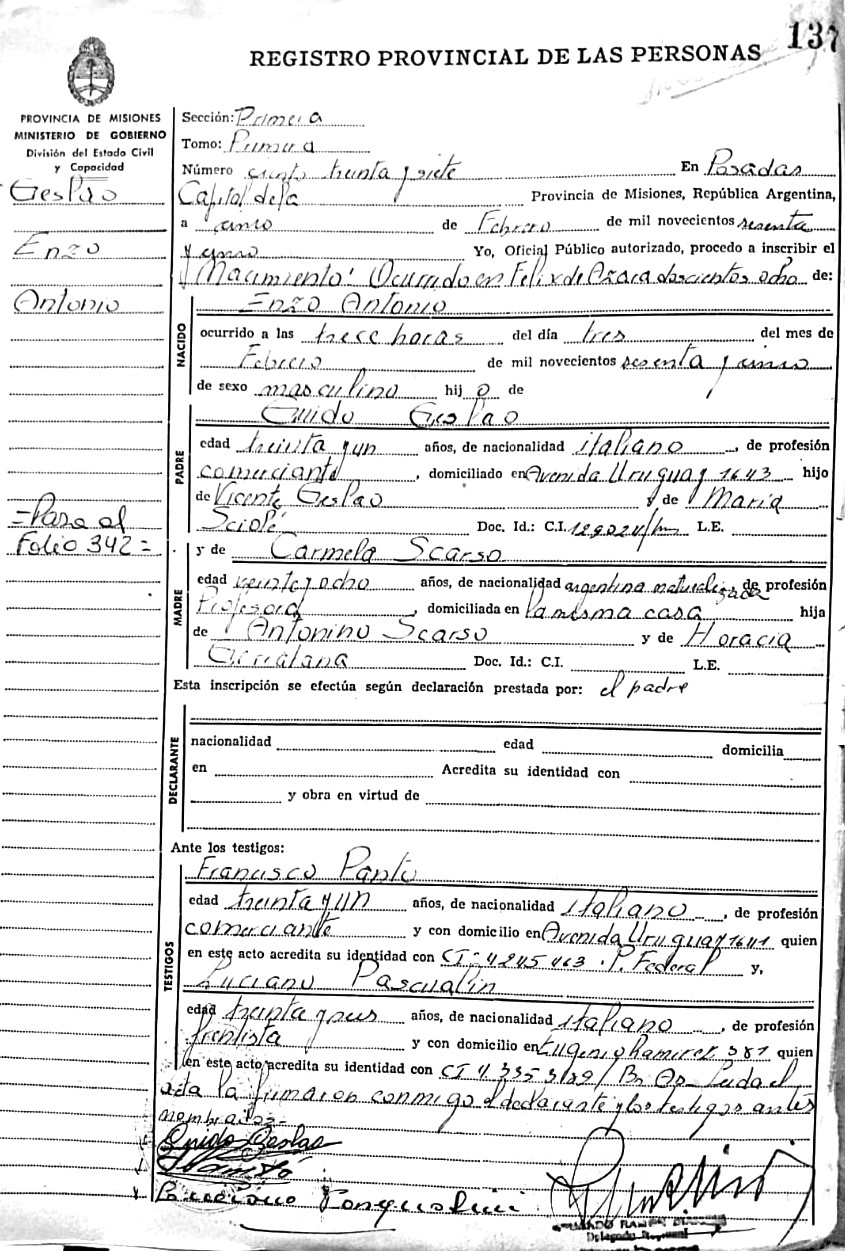 137
REGISTRO PROVINCIAL DE LAS PERSONAS
PROVINCIA DE MISIONES
MINISTERIO DE GOBIERNO
División del Estado Civil
y Capacidad
Geslao
Enzo
Antonio
=Pasa al
Folio 342=
Sección: Primera
Tomo: Primera
Número ciento treinta y siete En Posadas
Capital de la Provincia de Misiones, República Argentina,
a cinco de Febrero de mil novecientos sesenta
y uno Yo, Oficial Público autorizado, procedo a inscribir el
Nacimiento: Ocurrido en Felix de Azara doscientos ocho de:
NACIDO
Enzo Antonio
ocurrido a las trece horas del día tres del mes de
Febrero de mil novecientos sesenta y uno
de sexo masculino hijo de
PADRE
Guido Geslao
edad treinta y un años, de nacionalidad italiano, de profesión
comerciante, domiciliado en Avenida Uruguay 1643 hijo
de Vicente Geslao y de Maria
Sciolé Doc. Id.: C.I. L.E.
MADRE
y de Carmela Scarso
edad veinte y ocho años, de nacionalidad argentina naturalizada de profesión
Profesora, domiciliada en la misma casa hija
de Antonino Scarso y de Horacia
Doc. Id.: C.I. L.E.
Esta inscripción se efectúa según declaración prestada por: el padre
DECLARANTE
nacionalidad edad domicilia
en Acredita su identidad con
y obra en virtud de
Ante los testigos:
TESTIGOS
Francisco
edad treinta y un años, de nacionalidad italiano, de profesión
comerciante y con domicilio en Avenida Uruguay 1641 quien
en este acto acredita su identidad con CI- 4245463. P. Federal y,
Luciano Pascualin
edad treinta y años, de nacionalidad italiano, de profesión
frentista y con domicilio en Eugenio Ramirez 387 quien
en este acto acredita su identidad con CI Bs As- Leida el
acta la firman conmigo el declarante y los testigos antes
nombrados-
Guido Geslao
Luciano
Delegado